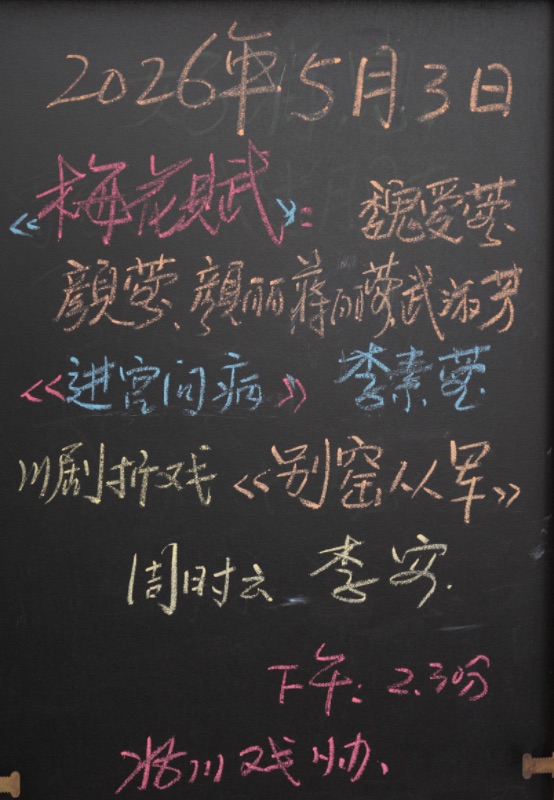 2026年5月3日
《梅花赋》: 魏爱莹
颜莹、颜丽 蒋丽 武淑芳
《进宫问病》 李素莹
川剧折戏《别窑从军》
周时云 李安.
下午: 2.30分